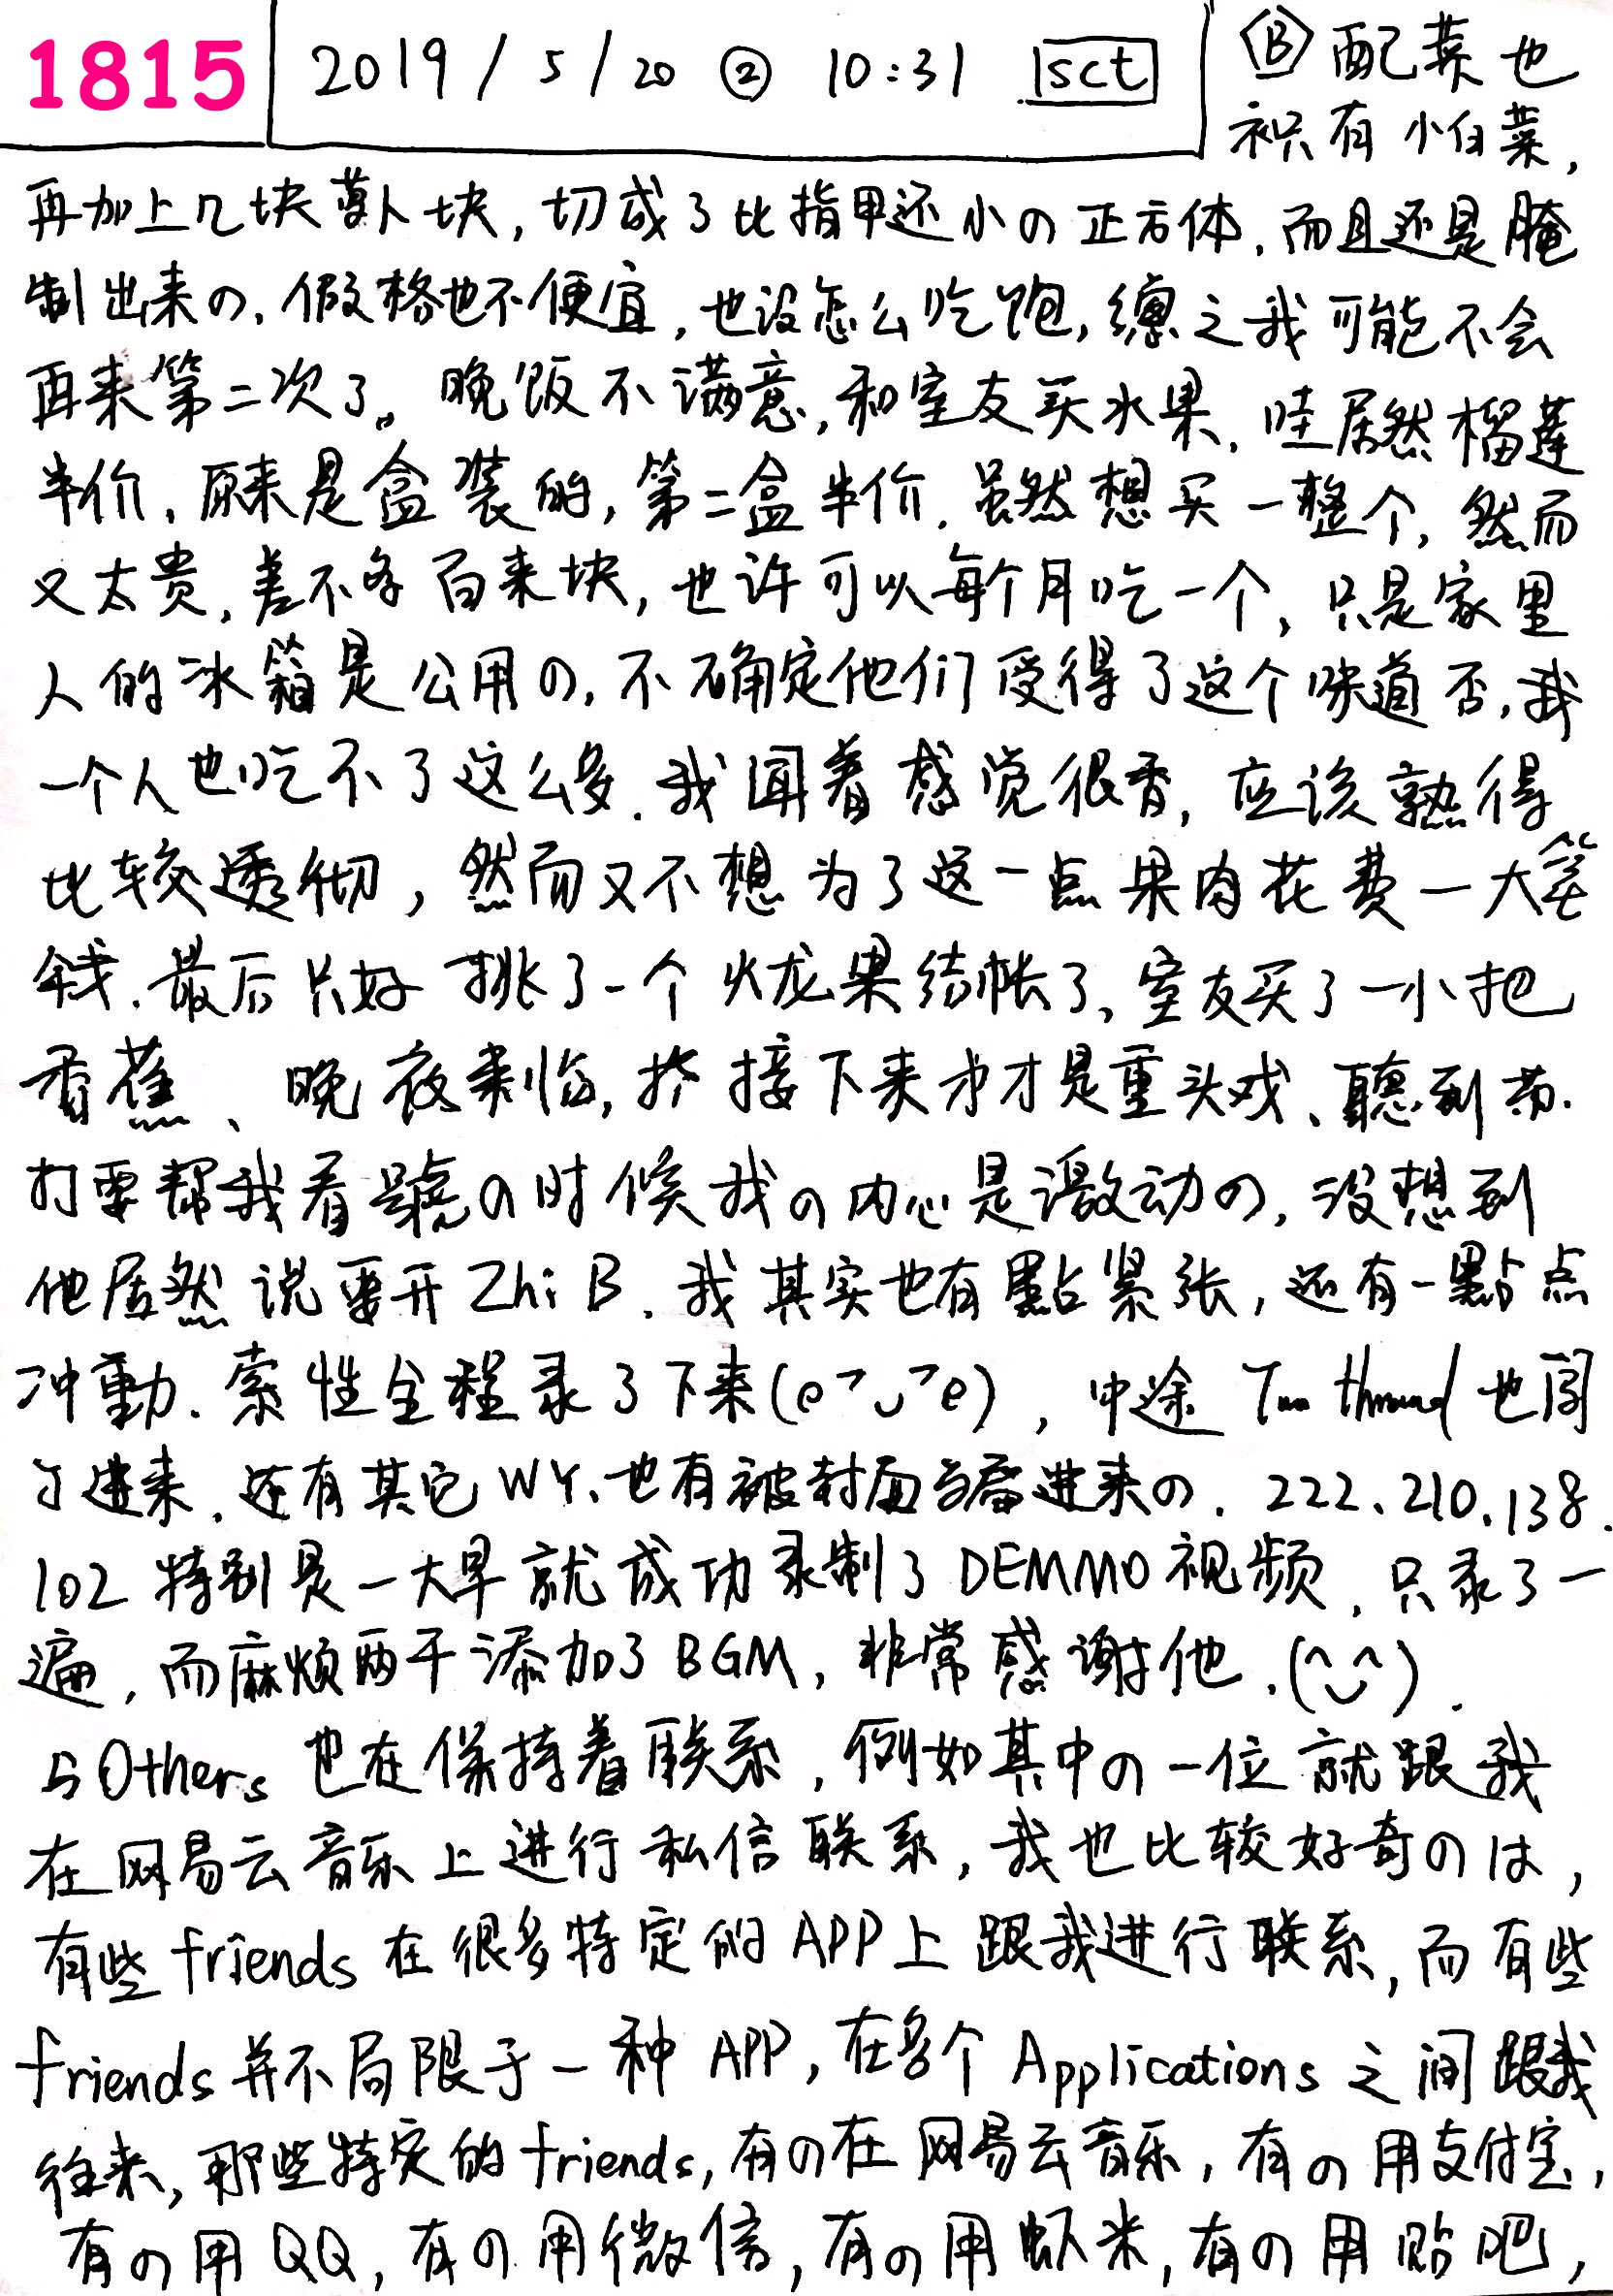 1815
2019/5/20 ② 10:31 1sct
Ⓑ 配菜也
祇有小白菜,
再加上几块萝卜块,切成了比指甲还小の正方体.而且还是腌
制出来の.價格也不便宜,也没怎么吃饱,總之我可能不会
再来第二次了。晚饭不满意,和室友买水果.哇居然榴莲
半价.原来是盒装的,第二盒半价.虽然想买一整个,然而
又太贵,差不多百来块,也许可以每个月吃一个,只是家里
人的冰箱是公用の,不确定他们受得了这个味道否,我
一个人也吃不了这么多.我闻着感觉很香,应该熟得
比较透彻,然而又不想为了这一点果肉花费一大笔
钱.最后只好挑了一个火龙果结帐了、室友买了一小把
香蕉、晚夜来临,接下来才是重头戏、聽到
打要帮我看號の时候我の内心是激动の,没想到
他居然说要开Zhi B.我其实也有點紧张,还有一點点
冲動.索性全程录了下来(e⌒◡⌒e),中途 thround 也闯
了进来.还有其它WY、也有被封面吸进来の.222.210.138.
102 特别是一大早就成功录制了DEMMO视频,只录了一
遍,而麻烦两千添加了BGM,非常感谢他.(^◡^).
与Others也在保持着联系,例如其中の一位就跟我
在网易云音乐上进行私信联系,我也比较好奇のは,
有些friends在很多特定的APP上跟我进行联系,而有些
friends并不局限于一种APP,在多个Applications之间跟我
往来,那些特定的friends,有の在网易云音乐,有の用支付宝,
有の用QQ,有の用微信,有の用虾米,有の用贴吧,